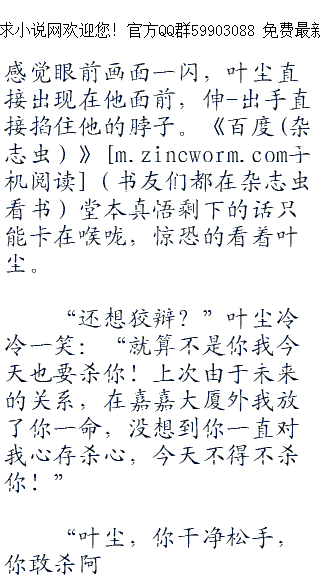 求小说网欢迎您！官方QQ群59903088 免费最新
感觉眼前画面一闪，叶尘直
接出现在他面前，伸-出手直
接掐住他的脖子。《百度(杂
志虫）》[m.zincworm.com手
机阅读]（书友们都在杂志虫
看书）堂本真悟剩下的话只
能卡在喉咙，惊恐的看着叶
尘。
“还想狡辩？”叶尘冷
冷一笑：“就算不是你我今
天也要杀你！上次由于未来
的关系，在嘉嘉大厦外我放
了你一命，没想到你一直对
我心存杀心，今天不得不杀
你！”
“叶尘，你干净松手，
你敢杀阿